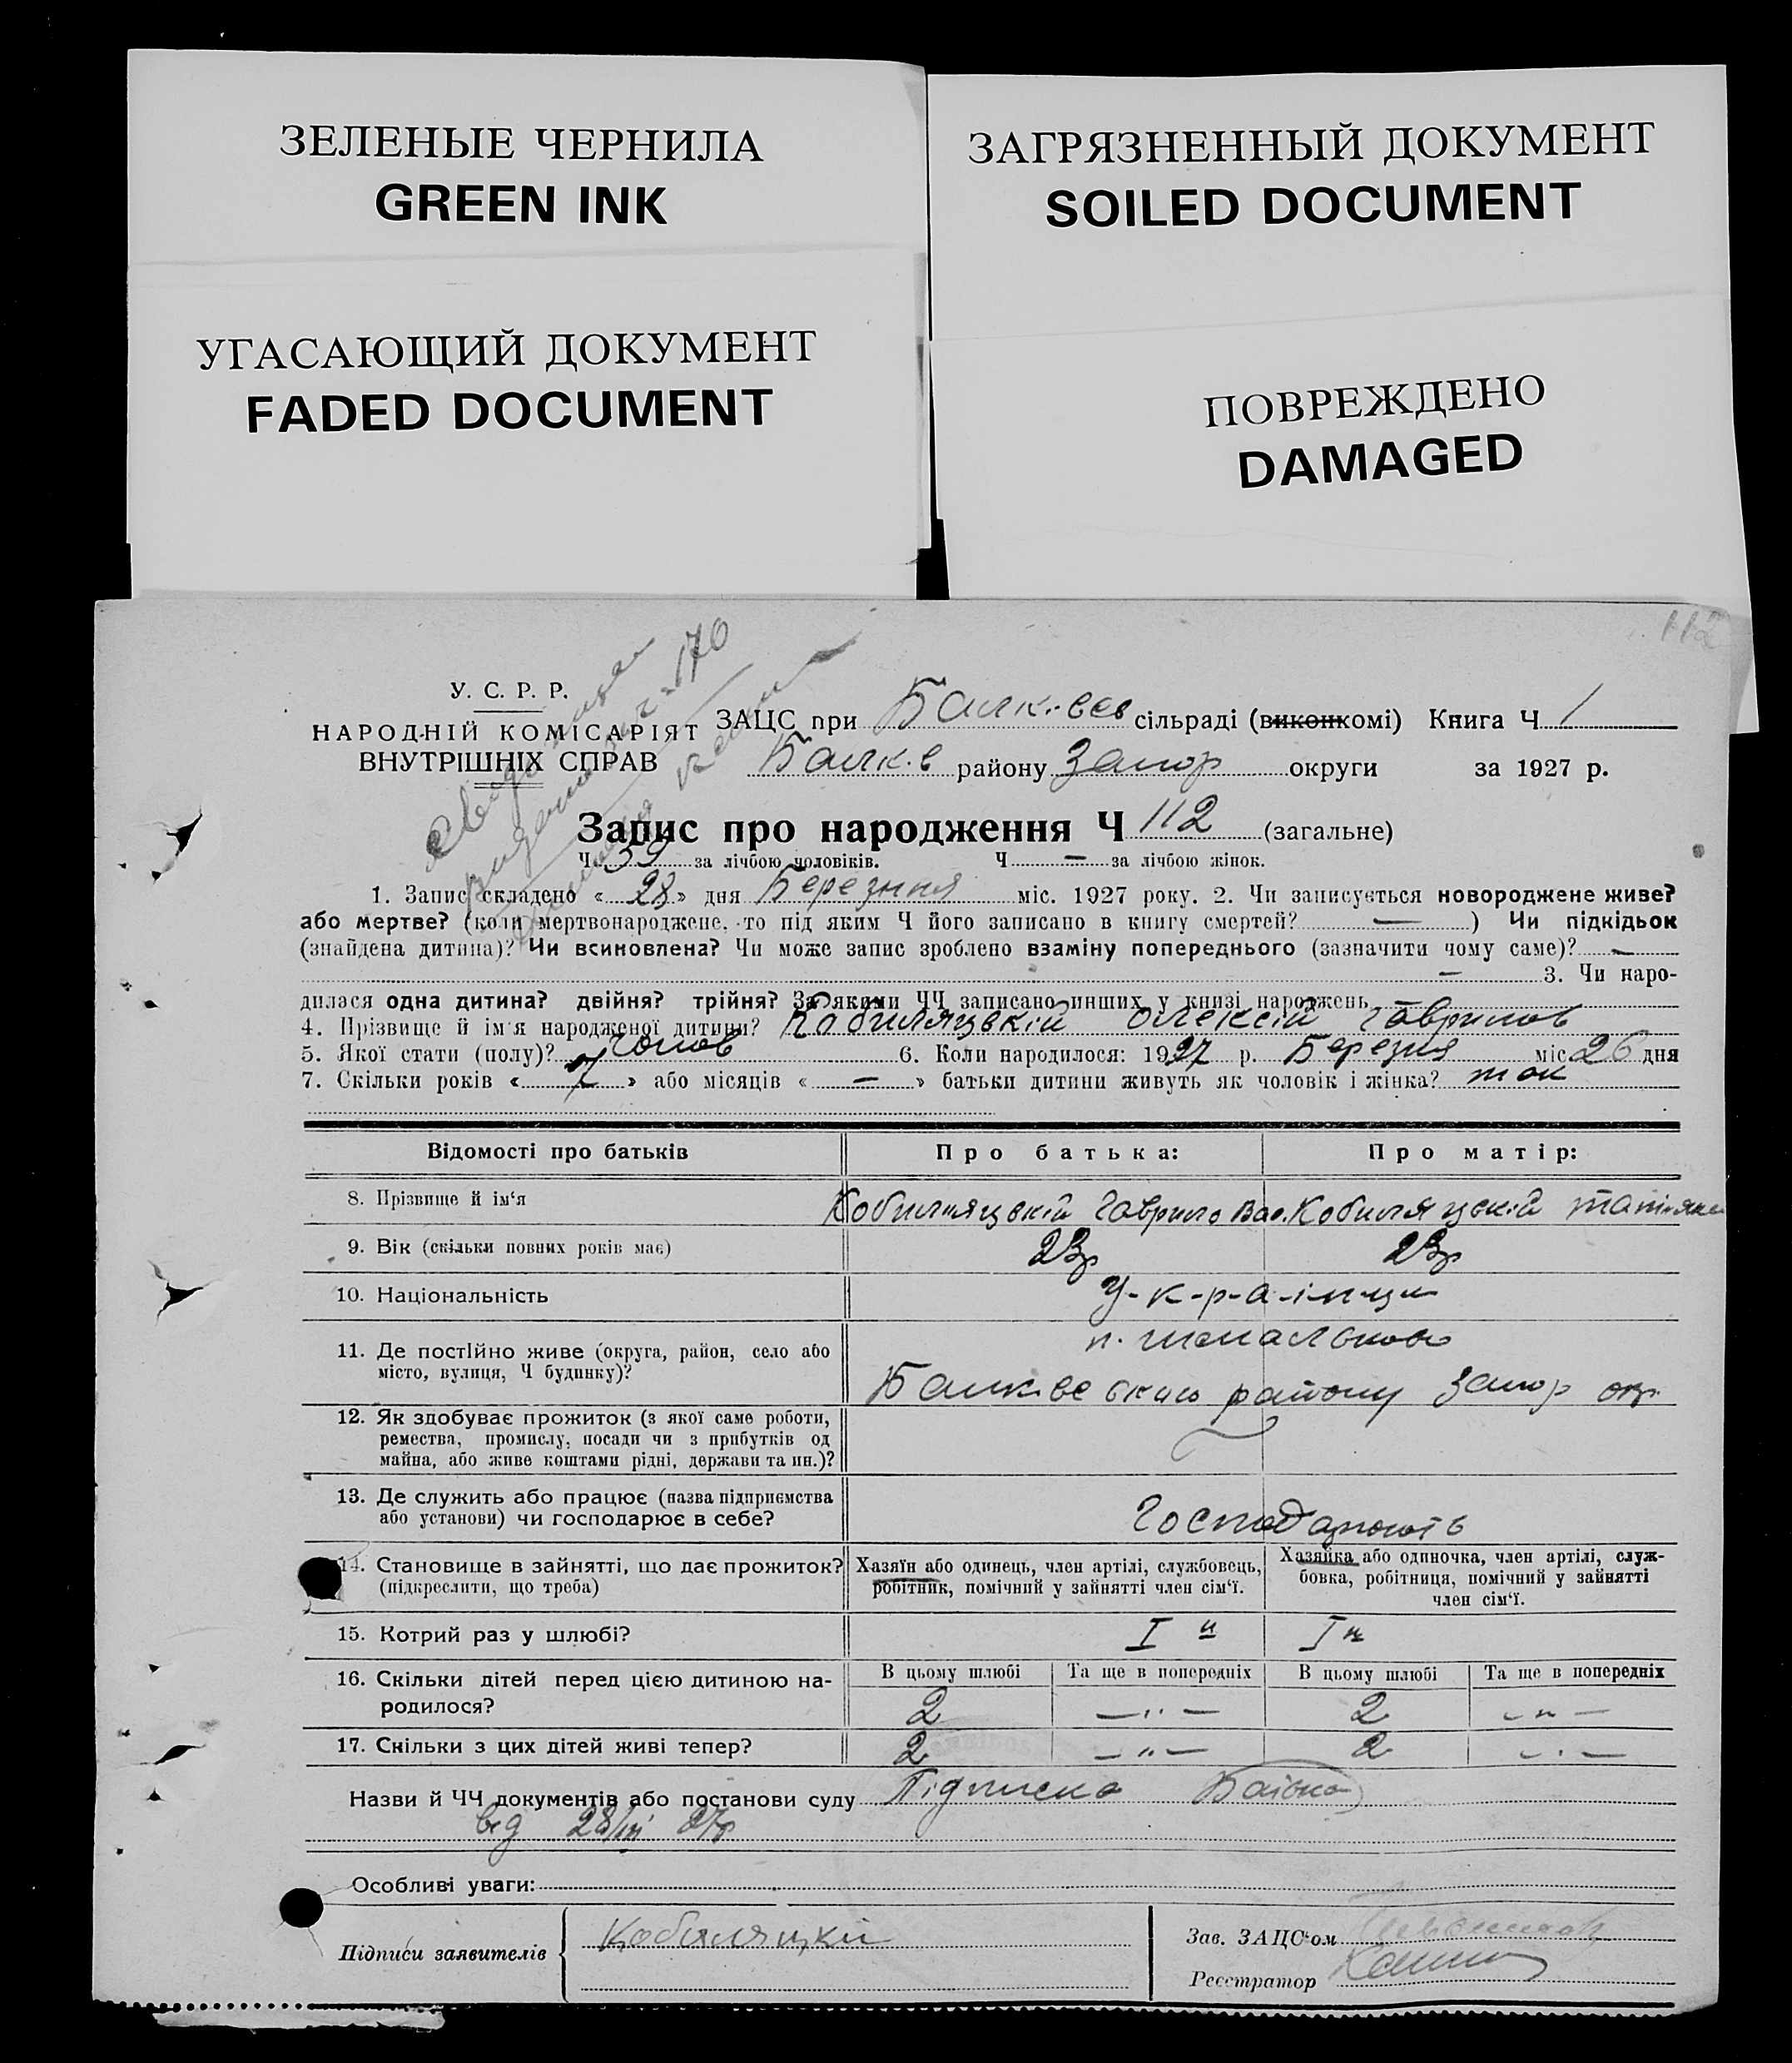 ЗЕЛЕНЫЕ ЧЕРНИЛА
GREEN INK
УГАСАЮЩИЙ ДОКУМЕНТ
FADED DOCUMENT
ЗАГРЯЗНЕННЫЙ ДОКУМЕНТ
SOILED DOCUMENT
ПОВРЕЖДЕНО
DAMAGED
112
170
У. С. Р. Р.
НАРОДНІЙ КОМІСАРІЯТ
ВНУТРІШНІХ СПРАВ
ЗАЦС при сільраді (виконкомі) Книга Ч 1
району Запор округи за 1927 р.
Запис про народження Ч 112 (загальне)
Ч 59 за лічбою чоловіків. Ч — за лічбою жінок.
1. Запис складено « 28 » дня Березння міс. 1927 року. 2. Чи записується новороджене живе?
або мертве? (коли мертвонароджене, то під яким Ч його записано в книгу смертей? — ) Чи підкідьок
(знайдена дитина)? Чи всиновлена? Чи може запис зроблено взаміну попереднього (зазначити чому саме)? —
— 3. Чи наро-
дилася одна дитина? двійня? трійня? За якими ЧЧ записано инших у книзі народжень
4. Прізвище й ім'я народженої дитини? Кобиляцькій Олексій Гаврилов
5. Якої стати (полу)? Чолов 6. Коли народилося: 1927 р. Березня міс 26 дня
7. Скільки років « 7 » або місяців « — » батьки дитини живуть як чоловік і жінка? так
Відомості про батьків Про батька: Про матір:
8. Прізвище й ім'я Кобиляцькій Гаврило Вас. Кобиляцькій
9. Вік (скільки повних років має) 23р 23р
10. Національність У-к-р-а-ін-ци
11. Де постійно живе (округа, район, село або
місто, вулиця, Ч будинку)?
району Запор окр.
12. Як здобуває прожиток (з якої саме роботи,
ремества, промислу, посади чи з прибутків од
майна, або живе коштами рідні, держави та ин.)?
13. Де служить або працює (назва підприємства
або установи) чи господарює в себе? Господарюють
14. Становище в зайнятті, що дає прожиток?
(підкреслити, що треба)
Хазяїн або одинець, член артілі, службовець,
робітник, помічний у зайнятті член сім'ї.
Хазяйка або одиночка, член артілі, служ-
бовка, робітниця, помічний у зайнятті
член сім'ї.
15. Котрий раз у шлюбі? I й I й
16. Скільки дітей перед цією дитиною на-
родилося?
В цьому шлюбі Та ще в попередніх В цьому шлюбі Та ще в попередніх
2 — " — 2 — " —
17. Скільки з цих дітей живі тепер? 2 — " — 2 — " —
Назви й ЧЧ документів або постанови суду Підписка Батька
від 28/III 27р
Особливі уваги:
Підписи заявителів Кобиляцкий
Зав. ЗАЦС'ом
Реєстратор